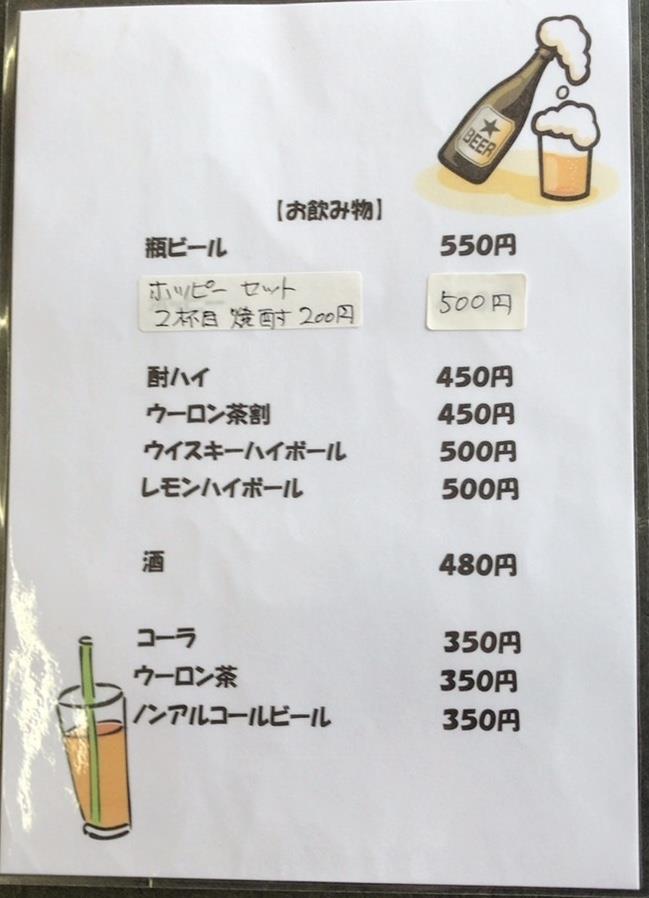 BEER
【お飲み物】
瓶ビール 550円
ホッピー セット 500円
2杯目 焼酎す 200円
酎ハイ 450円
ウーロン茶割 450円
ウイスキーハイボール 500円
レモンハイボール 500円
酒 480円
コーラ 350円
ウーロン茶 350円
ノンアルコールビール 350円